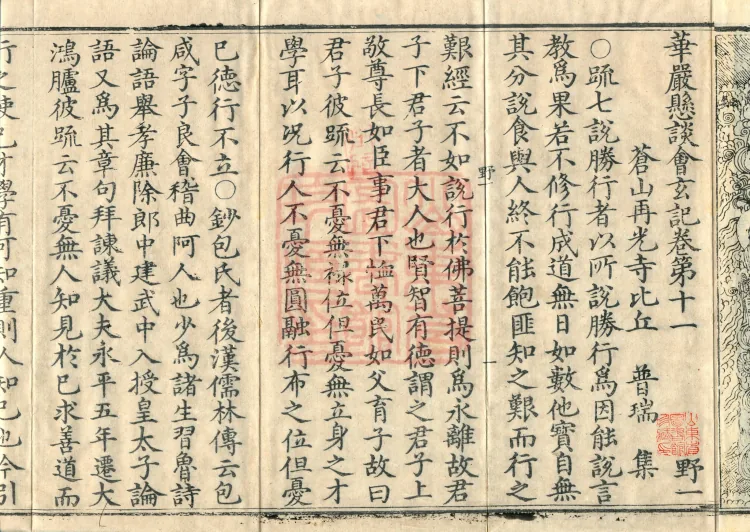 華嚴懸談會玄記卷第十一 野一
蒼山再光寺比丘 普瑞 集
○疏七說勝行者以所說勝行爲因能說言
教爲果若不修行成道無日如數他寶自無
其分說食與人終不能飽匪知之艱而行之
野一 一
艱經云不如說行於佛菩提則爲永離故君
子下君子者大人也賢智有德謂之君子上
敬尊長如臣事君下恤萬民如父育子故曰
君子彼疏云不憂無祿位但憂無立身之才
學耳以况行人不憂無圓融行布之位但憂
已德行不立○鈔包氏者後漢儒林傳云包
咸字子良會稽曲阿人也少爲諸生習魯詩
論語舉孝廉除郎中建武中入授皇太子論
語又爲其章句拜諫議大夫永平五年遷大
鴻臚彼疏云不憂無人知見於已求善道而
行之使已才學有可知重則人知已也今引